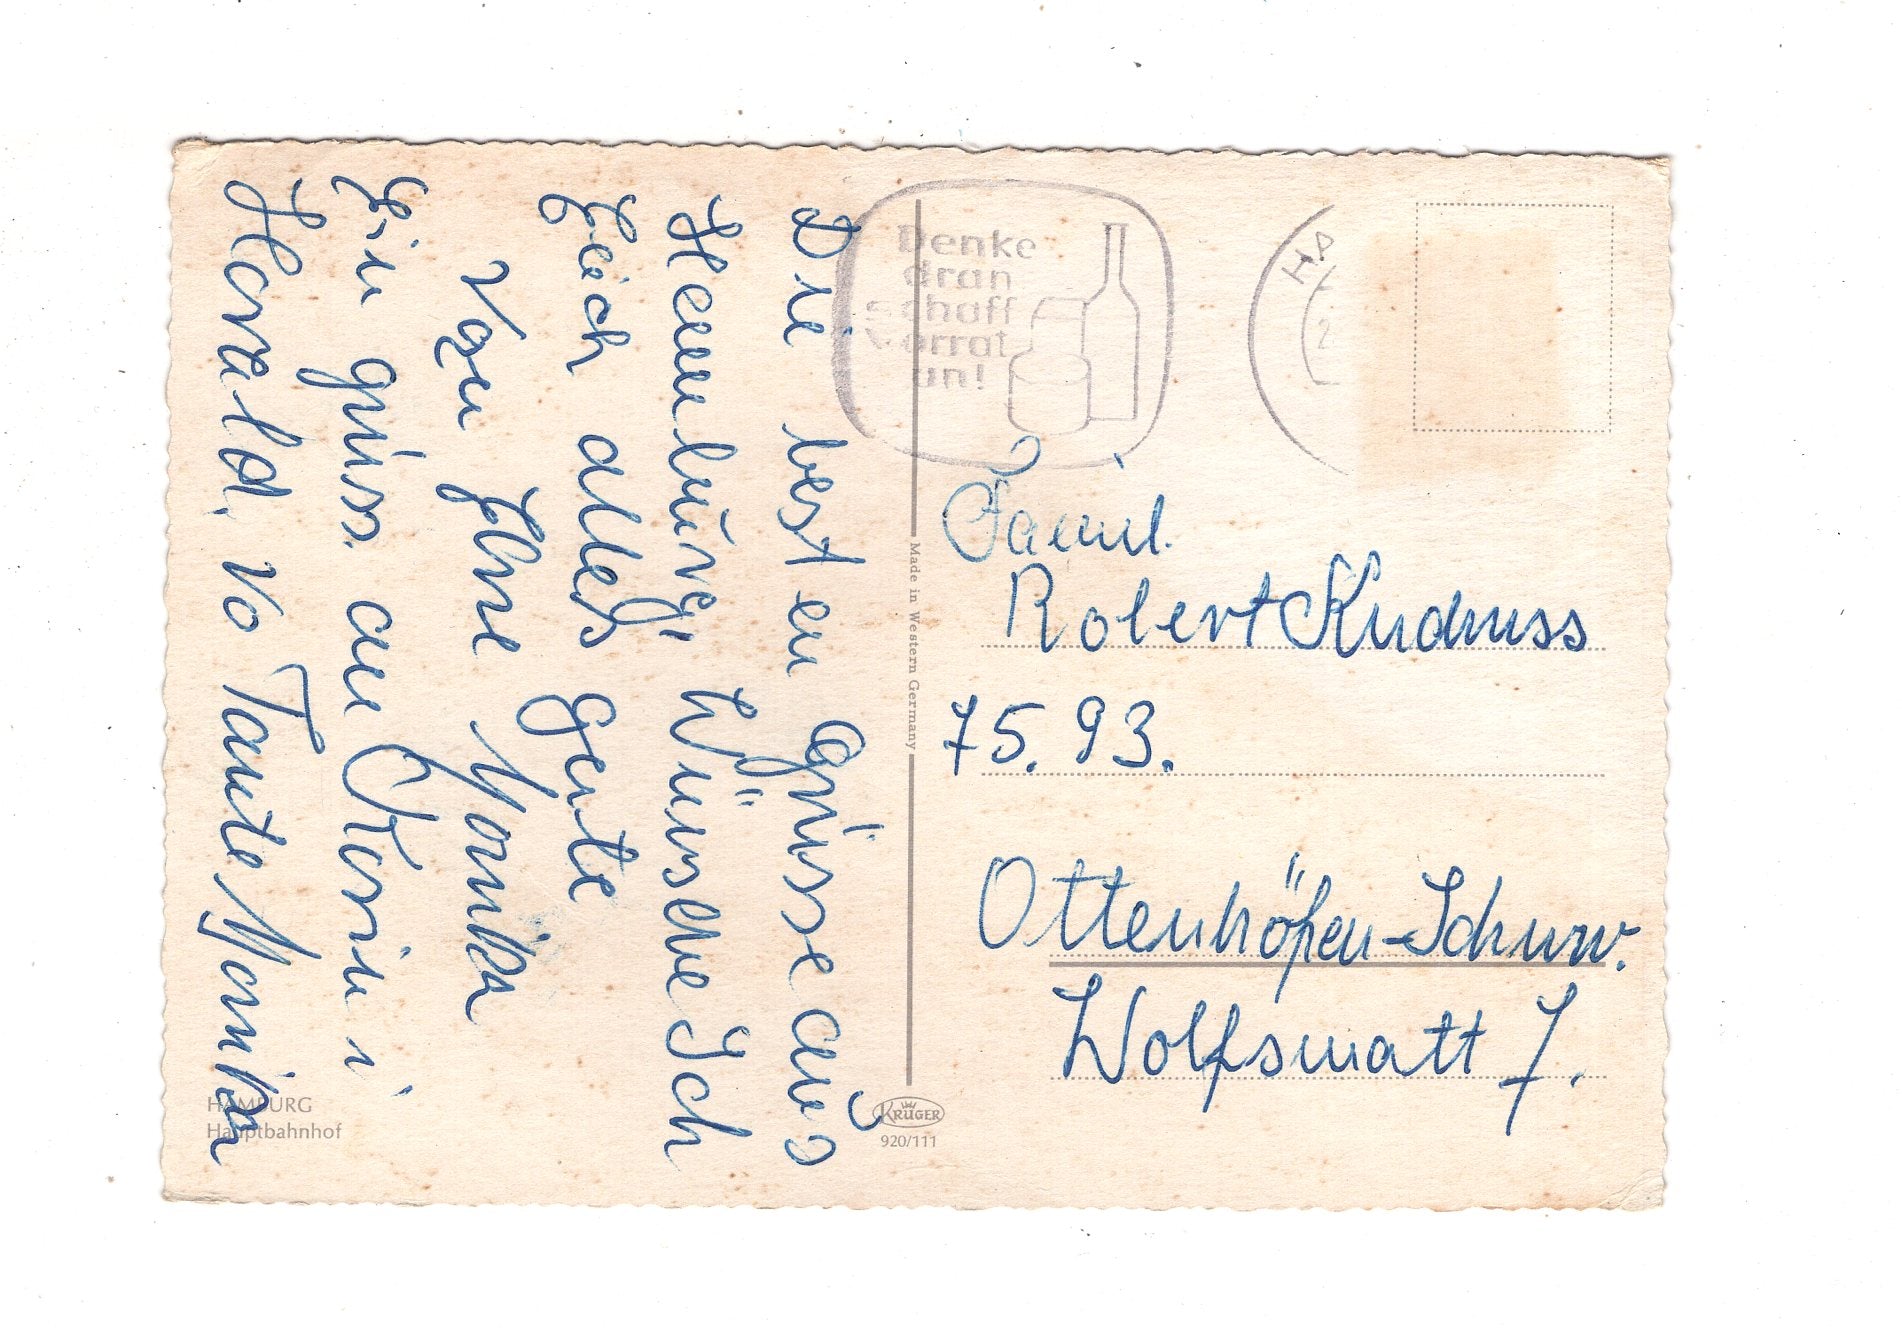 Die besten Grüsse aus
Hammburg Wünsche Ich
Eüch alles gute
Von Ihre Monika
Ein grüss. an Karin i
Harald, vo Tante Monika
Denke
dran
schaff
Vorrat
an!
HA
2
Famil.
Robert
75.93.
Ottenhöfen-Schww.
Wolfsmatt 7.
Made in Western Germany
HAMBURG
Hauptbahnhof
KRÜGER
920/111